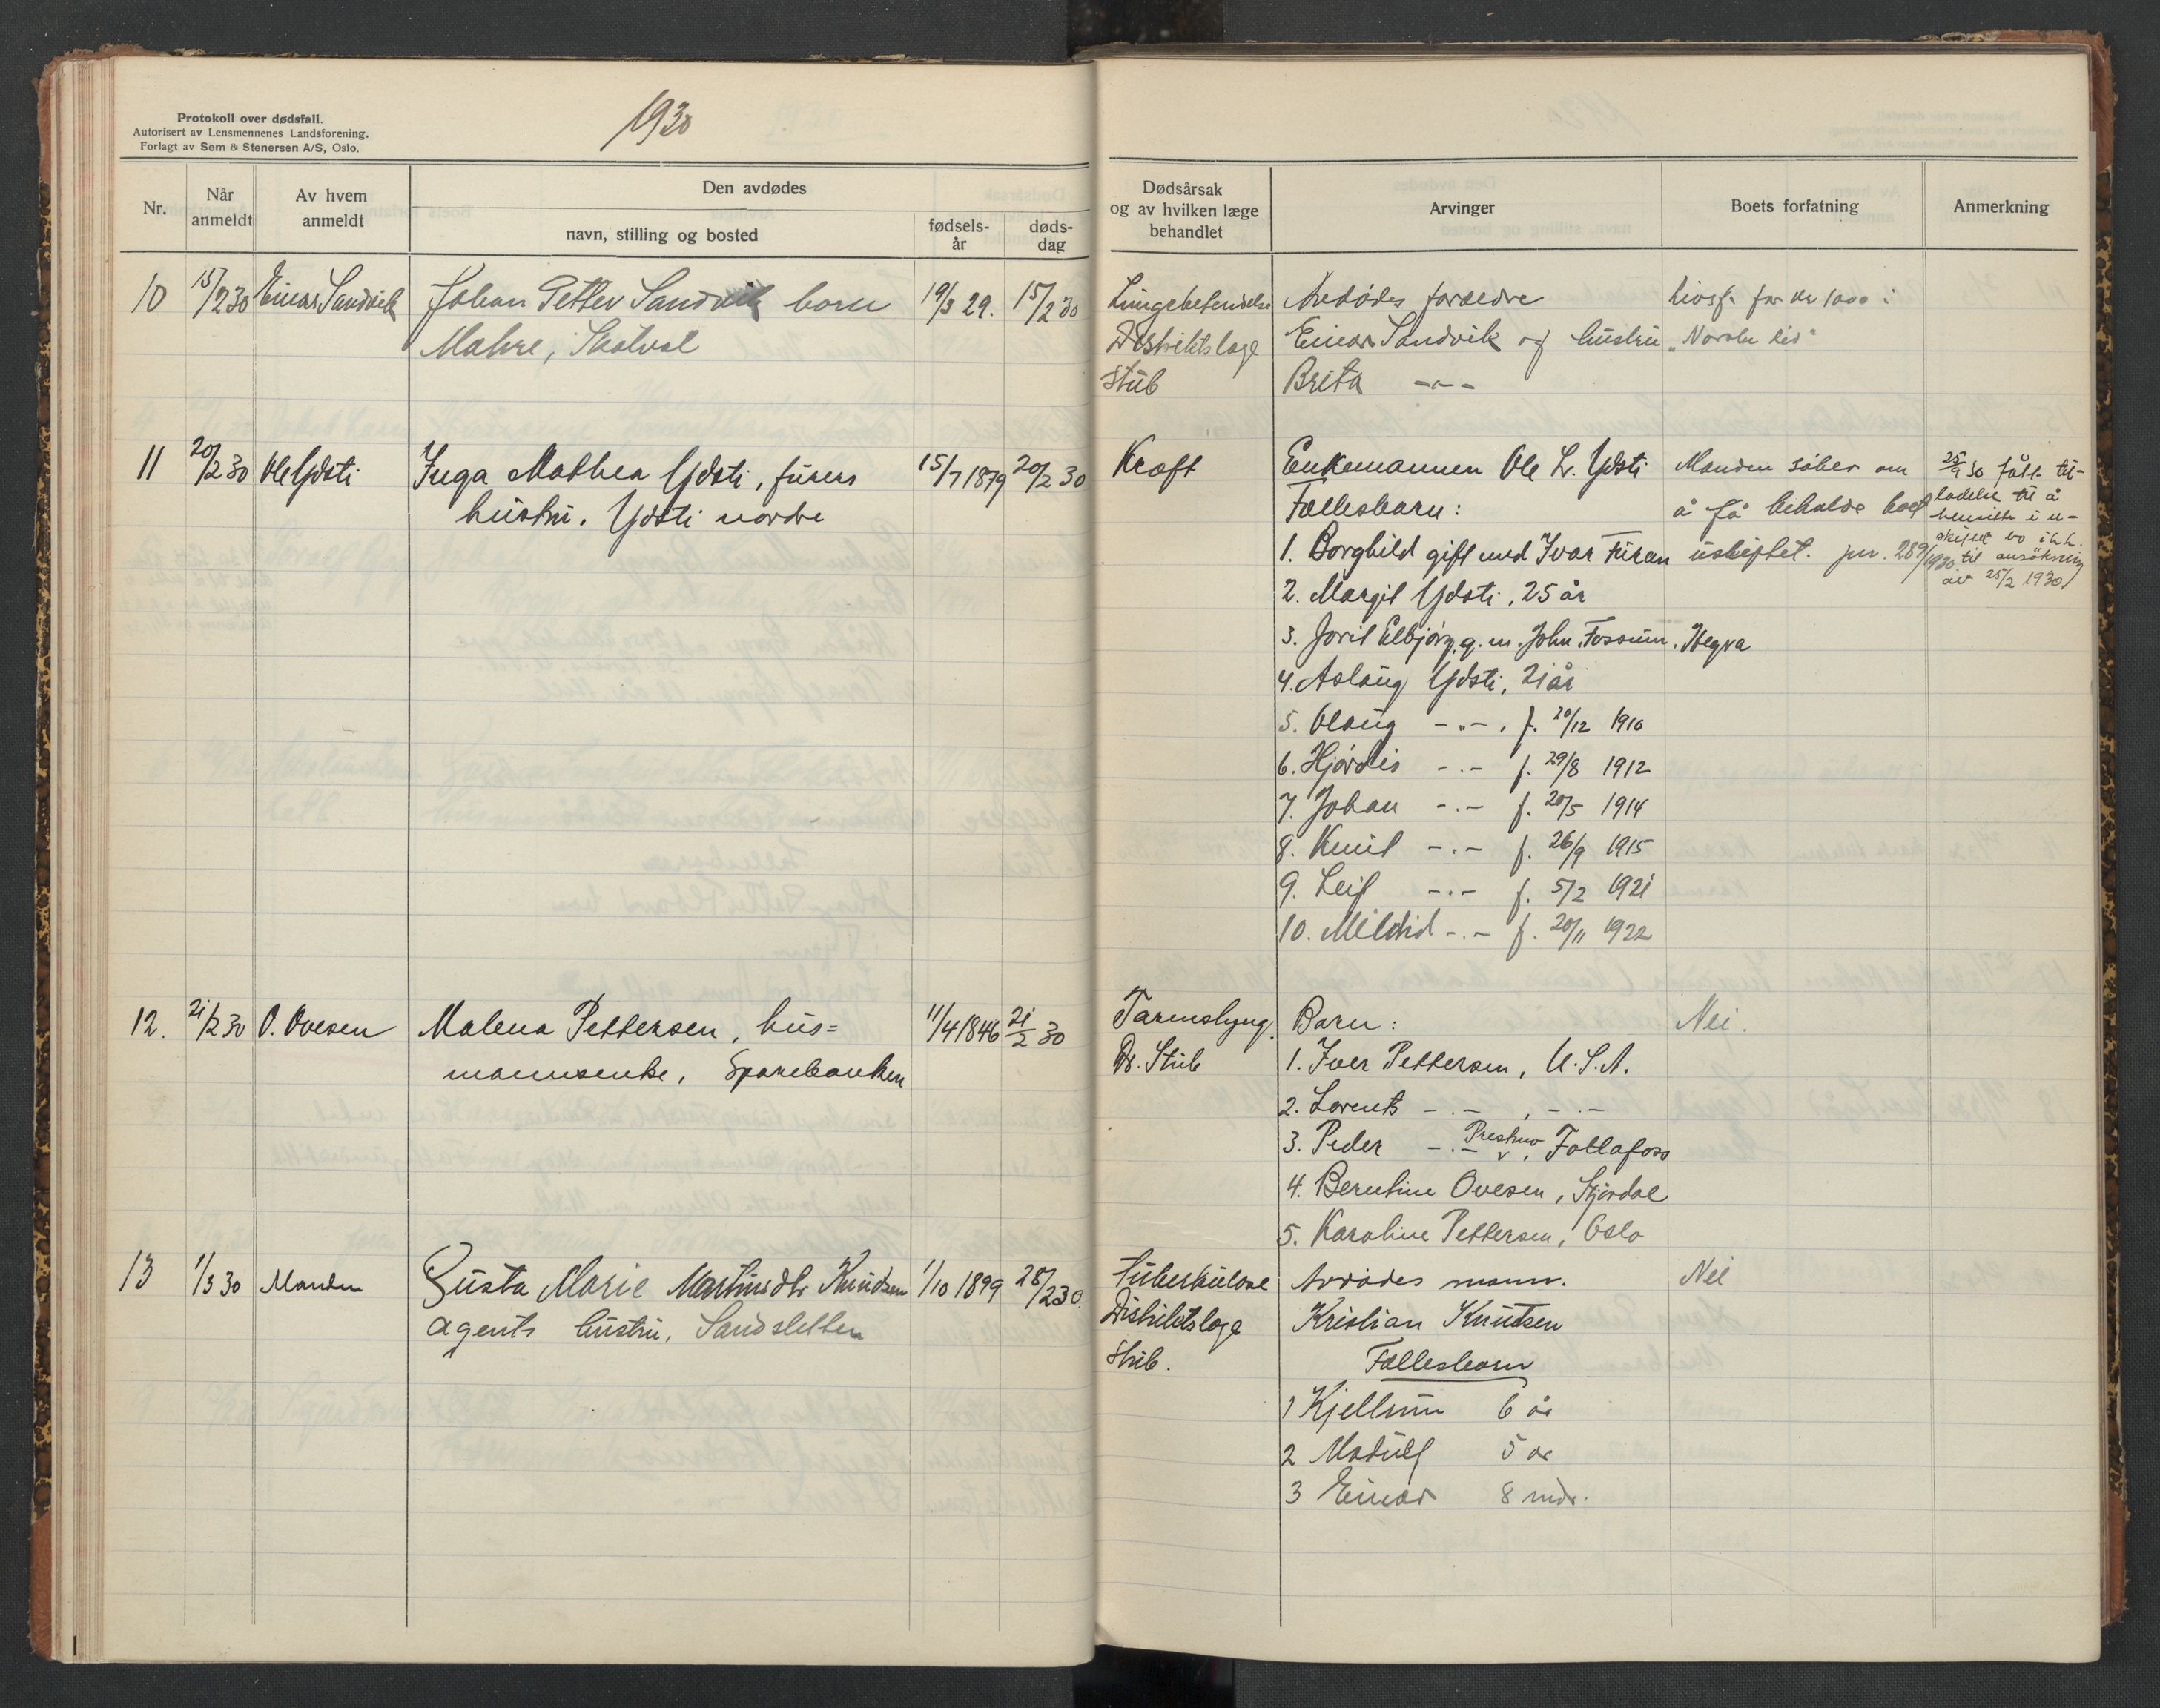 Protokoll over dødsfall.
Autorisert av Lensmennenes Landsforening.
Forlagt av Sem & Stenersen A/S, Oslo.
1930
Nr.
Når
anmeldt
Av hvem
anmeldt
Den avdødes
navn, stilling og bosted
fødsels-
år
døds-
dag
Dødsårsak
og av hvilken læge
behandlet
Arvinger
Boets forfatning
Anmerkning
10 15/2 30 Einar Sandvik Johan Petter Sandvik barn 19/3 29. 15/2 30
Mæhre, Skatval
Lungebetendelse
Distriktslæge
Stub
Avdødes foreldre
Einar Sandvik og hustru
Brita -"-
Livsf. for kr 1000 i
"Norske Liv"
11 20/2 30 Ole Ydsti Inga Mathea Ydsti, furers 15/7 1879 20/2 30
hustru. Ydsti nordre
Kræft
Enkemannen Ole L. Ydsti
Fællesbarn:
1. Borghild gift med Ivar Furan
2. Margit Ydsti, 25 år
3. Joril Elbjørg g. m. John Fossum, Hegra
4. Aslaug Ydsti, 21 år
5. Olaug -"-, f. 20/12 1910
6. Hjørdis -"- f. 29/8 1912
7. Johan -"- f. 20/5 1914
8. Knut -"- f. 26/9 1915
9. Leif -"- f. 5/2 1921
10. Mildrid -"- f. 20/11 1922
Manden søker om
å få beholde boet
uskiftet. jnr. 289/1930
25/9 30 fått til-
ladelse til å
hensitte i u-
skiftet bo i h.h.
til ansøkning
av 25/2 1930
12. 21/2 30 O. Ovesen Malena Pettersen, hus= 11/4 1846 21/2 30
mannsenke, Sparebanken
Tarmslyng.
Dr. Stub
Barn:
1. Iver Pettersen, U.S.A.
2. Lorents -"-, -"-
3. Peder -"- Prestmo, Follafoss
4. Berntine Ovesen, Stjørdal
5. Karoline Pettersen, Oslo
Nei.
13 1/3 30 Manden Gusta Marie Martinsdtr Knudsen 1/10 1899 28/2 30.
agents hustru, Sandsletten
Tuberkulose
Distriktslæge
Stub.
Avdødes mann.
Kristian Knutsen
Fællesbarn
1 Kjellrun 6 år
2 Modulf 5 år
3 Einar 8 mdr.
Nei